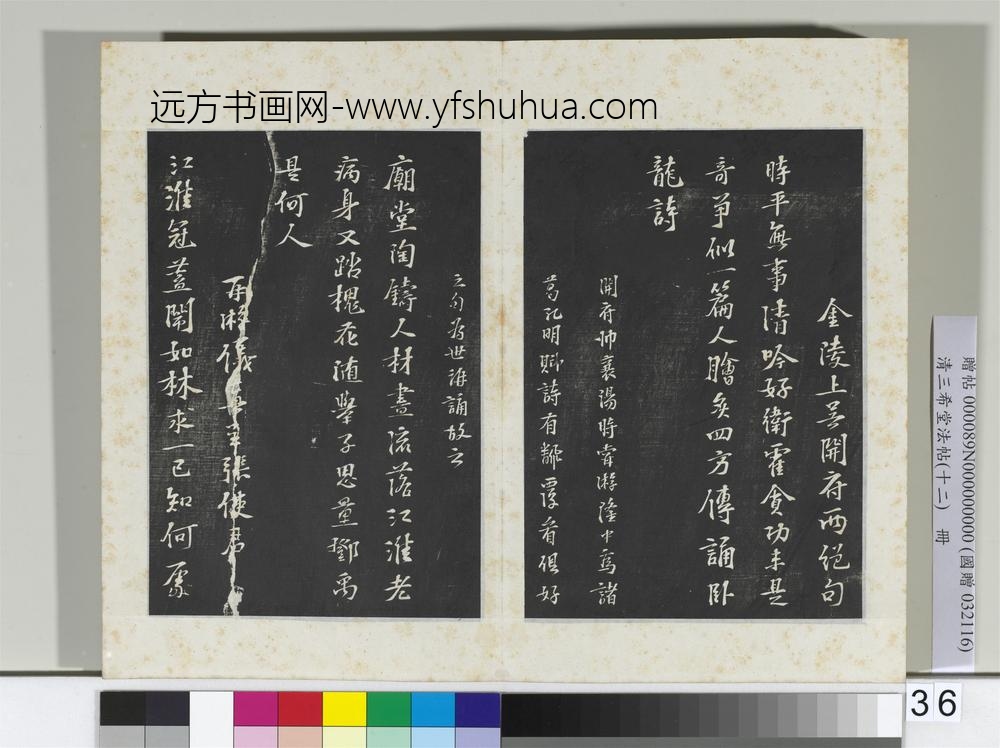 远方书画网-www.yfshuhua.com
金陵上吴開府兩絕句
時平無事清吟好衛霍貪功未是
奇爭似一篇人膾炙四方傳誦臥
龍詩
開府帥襄陽時嘗游隆中為諸
葛孔明賦詩有黼黻看俱好
之句為世誦故云
廟堂陶鑄人材盡流落江淮老
病身又踏槐花隨舉子思量鄧禹
是何人
再游儀真呈張使君
江淮冠蓋鬧如林求一已知何處
贈帖 000089N000000000 (國贈 032116)
清三希堂法帖(十二) 冊
36